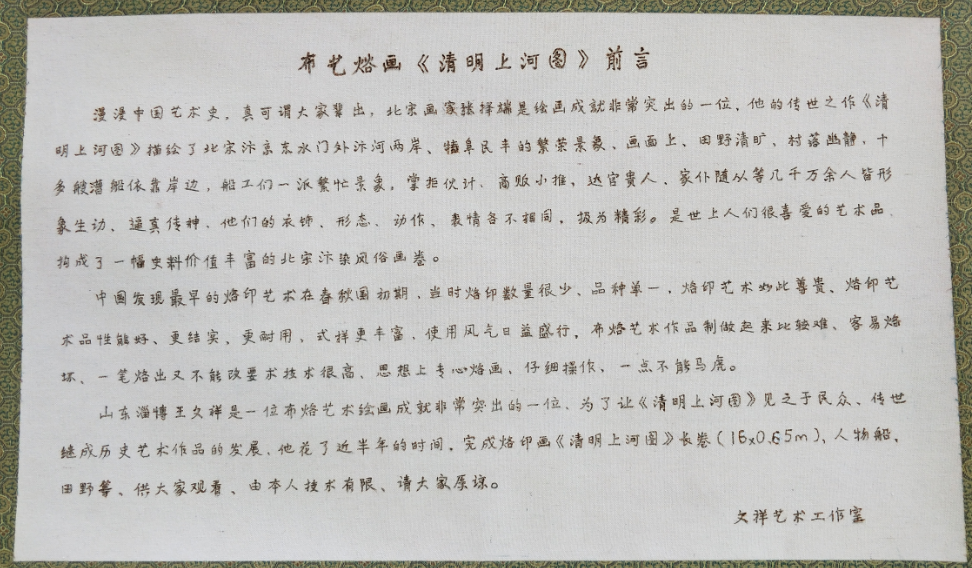 布艺烙画《清明上河图》前言
漫漫中国艺术史、真可谓大家辈出，北宋画家张择端是绘画成就非常突出的一位、他的传世之作《清
明上河图》描绘了北宋汴京东水门外汴河两岸、物阜民丰的繁荣景象、画面上、田野清旷、村落幽静、十
多艘漕船依靠岸边，船工们一派繁忙景象，掌柜伙计、商贩小推，达官贵人、家仆随从等几千万余人皆形
象生动、逼真传神、他们的衣饰、形态、动作、表情各不相同，极为精彩。是世上人们很喜爱的艺术品、
构成了一幅史料价值丰富的北宋汴梁风俗画卷。
中国发现最早的烙印艺术在春秋国初期、当时烙印数量很少、品种单一，烙印艺术如此尊贵、烙印艺
术品性能好、更结实、更耐用、式样更丰富、使用风气日益盛行，布烙艺术作品制做起来比较难、容易烙
坏、一笔烙出又不能改要求技术很高、思想上专心烙画、仔细操作、一点不能马虎。
山东淄博王文祥是一位布烙艺术绘画成就非常突出的一位、为了让《清明上河图》见之于民众、传世
继成历史艺术作品的发展、他花了近半年的时间，完成烙印画《清明上河图》长卷(16x0.65m)，人物船，
田野等、供大家观看、由本人技术有限、请大家原谅。
文祥艺术工作室